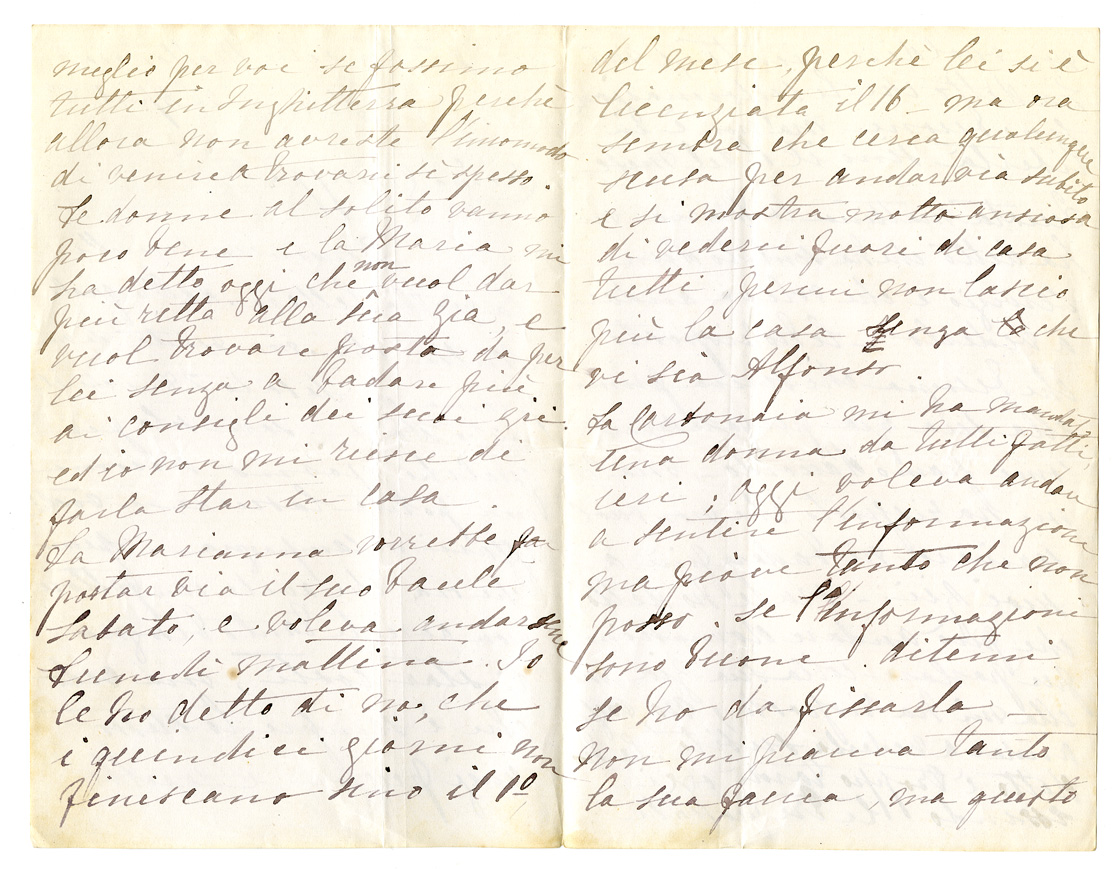 meglio per voi se fossimo
tutti in Inghilterra perchè
allora non avreste l'incomodo
di venire a trovarci sì spesso.
Le donne al solito vanno
poco bene e la Maria mi
ha detto oggi che non vuol dar
più retta alla sua Zia, e
vuol trovare posto da per
lei senza a badare più
ai consigli dei suoi zii.
ed io non mi riesce di
farla star in casa.
La Marianna vorrebbe far
portar via il suo baule
Sabato, e voleva andarsene
Lunedì mattina. Io
le ho detto di no, che
i quindici giorni non
finiscano sino il 1º
del mese, perchè lei si è
licenziata il 16 - ma ora
sembra che cerca qualunque
scusa per andar via subito
e si mostra molto ansiosa
di vederci fuori di casa
tutti, perciò non lascio
più la casa senza che
vi sia Alfonso.
La Carbonaia mi ha mandato
una donna da tutti fatti,
ieri, oggi voleva andare
a sentire l'informazione
ma piove tanto che non
posso. Se l'informazioni
sono buone ditemi
se ho da fissarla -
non mi piaceva tanto
la sua faccia, ma questo